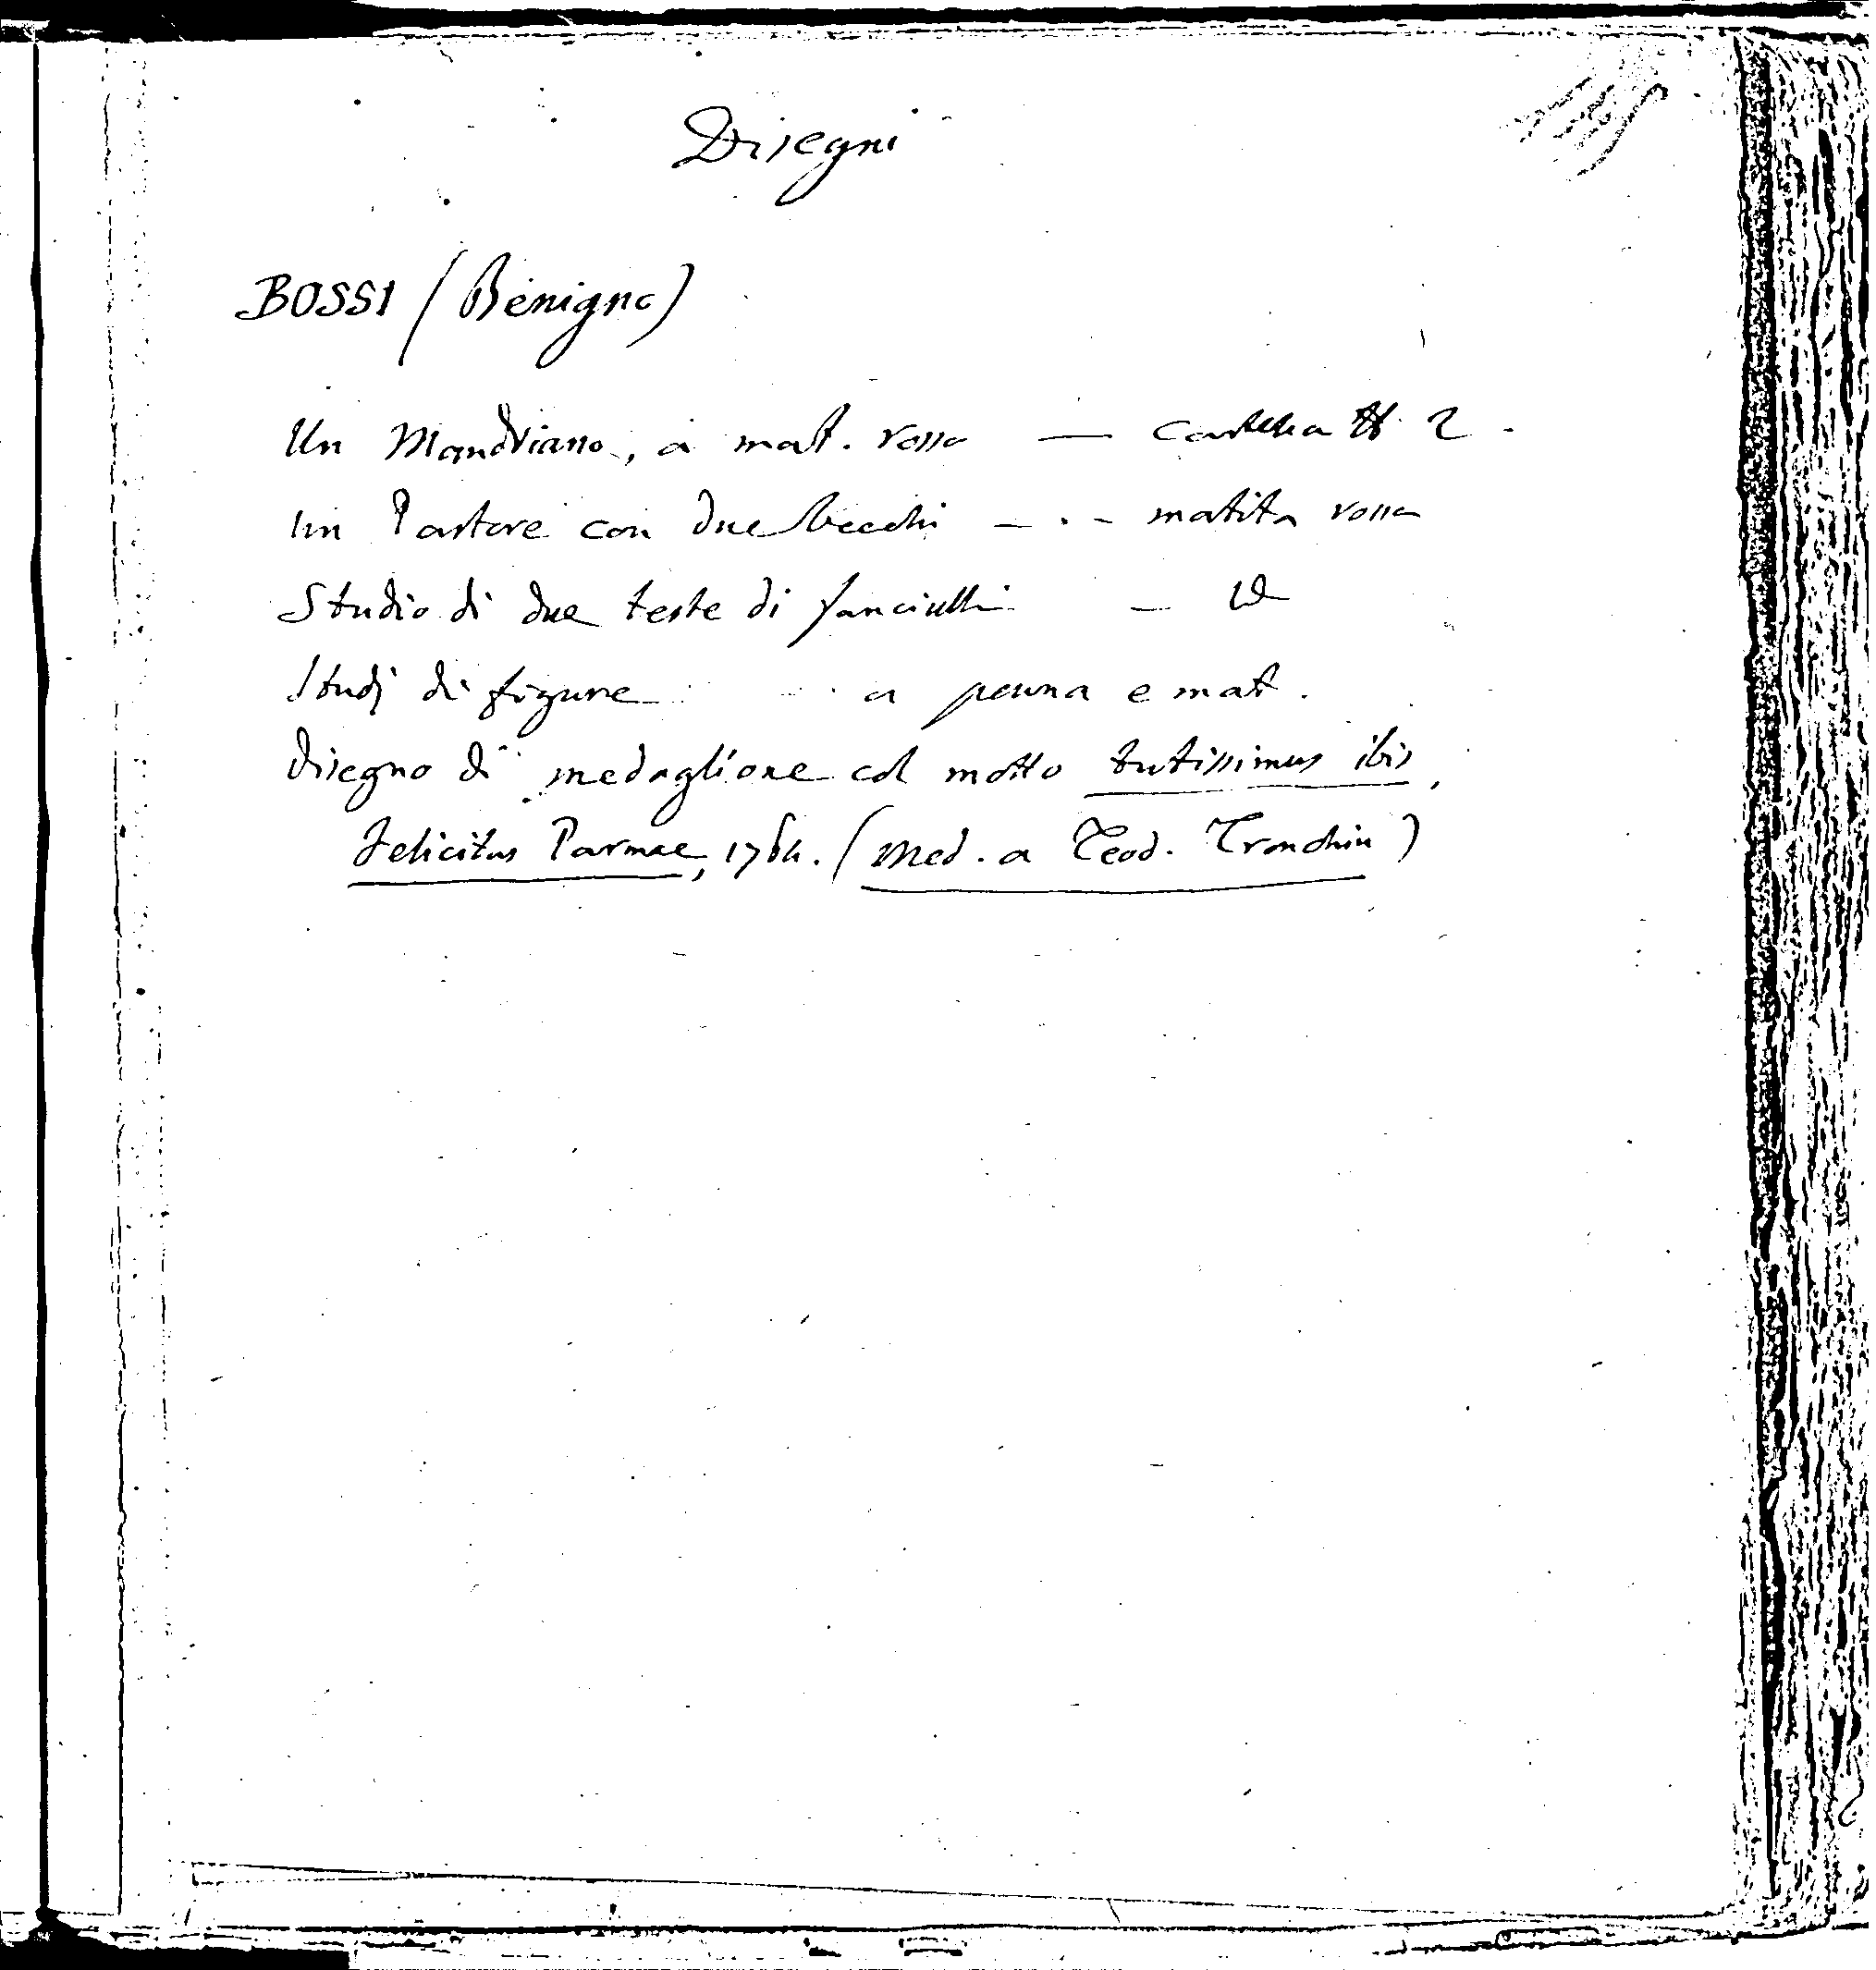 Disegni
BOSSI (Benigno)
Un Mandriano, a mat. rossa — cartella H 2.
Un Pastore con due becchi — . — matita rossa
Studio di due teste di fanciulli — Id
Studj di figure a penna e mat.
Disegno di medaglione col motto tutissimus ibis,
Felicitas Parmae, 1764. (Med. a Teod. Tronchin)